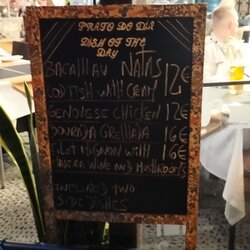 PRATO DO DIA
DISH OF THE
DAY
BACALHAU NATAS 12€
COD FISH WITH CREAM
GENOVESE CHICKEN 12€
DOURADA GRELHADA 16€
FILET MIGNON WITH 16€
MADEIRA WINE AND MUSHROOMS
INCLUDED TWO
SIDE DISHES